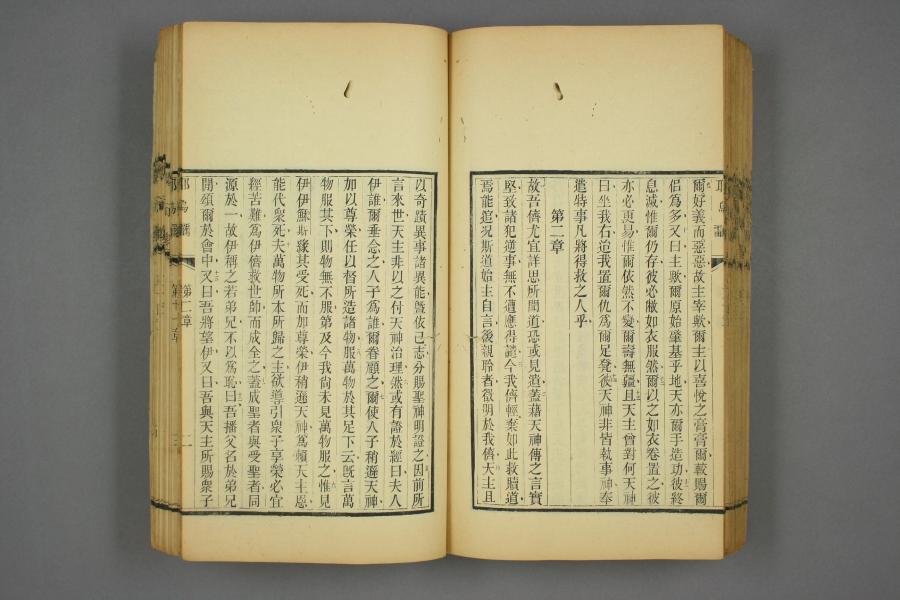 爾好義而惡惡故主宰歟爾主以喜悅之膏膏爾較賜爾
侶為多又曰主歟爾原始肇基乎地天亦爾手造功彼終
息滅惟爾仍存彼必敝如衣服然爾以之如衣卷置之彼
亦必更易惟爾依然不變爾壽無疆且天主曾對何天神
曰坐我右迨我置爾仇為爾足凳彼天神非皆執事神奉
遣特事凡將得救之人乎
第二章
故吾儕尤宜詳思所聞道恐或見遺蓋藉天神傳之言實
堅致諸犯逆事無不遭應得譴今我儕輕棄如此救贖道
焉能逭況斯道始主自言後親聆者徵明於我儕天主且
以奇蹟異事諸異能暨依己志分賜聖神明證之因前所
言來世天主非以之付天神治理然或有證於經曰夫人
伊誰爾垂念之人子為誰爾眷顧之爾使人子稍遜天神
加以尊榮任以督所造諸物服萬物於其足下云既言萬
物服其下則物無不服第及今我尚未見萬物服之惟見
伊伊穌斯緣其受死而加尊榮伊稍遜天神為賴天主恩
能代衆死夫萬物所本所歸之主欲導引衆子享榮必宜
經苦難為伊儕救世帥而成全之蓋成聖者與受聖者同
源於一故伊稱之若弟兄不以為恥曰吾播父名於弟兄
間頌爾於會中又曰吾將望伊又曰吾與天主所賜衆子
第二章